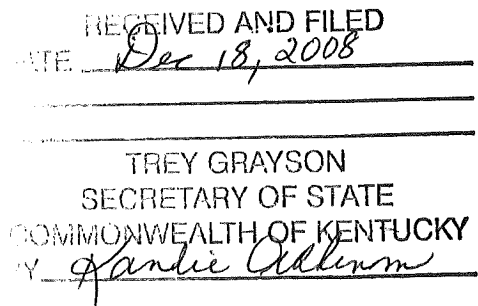 RECEIVED AND FILED
DATE Dec 18, 2008
TREY GRAYSON
SECRETARY OF STATE
COMMONWEALTH OF KENTUCKY
BY Kandie Adkinson